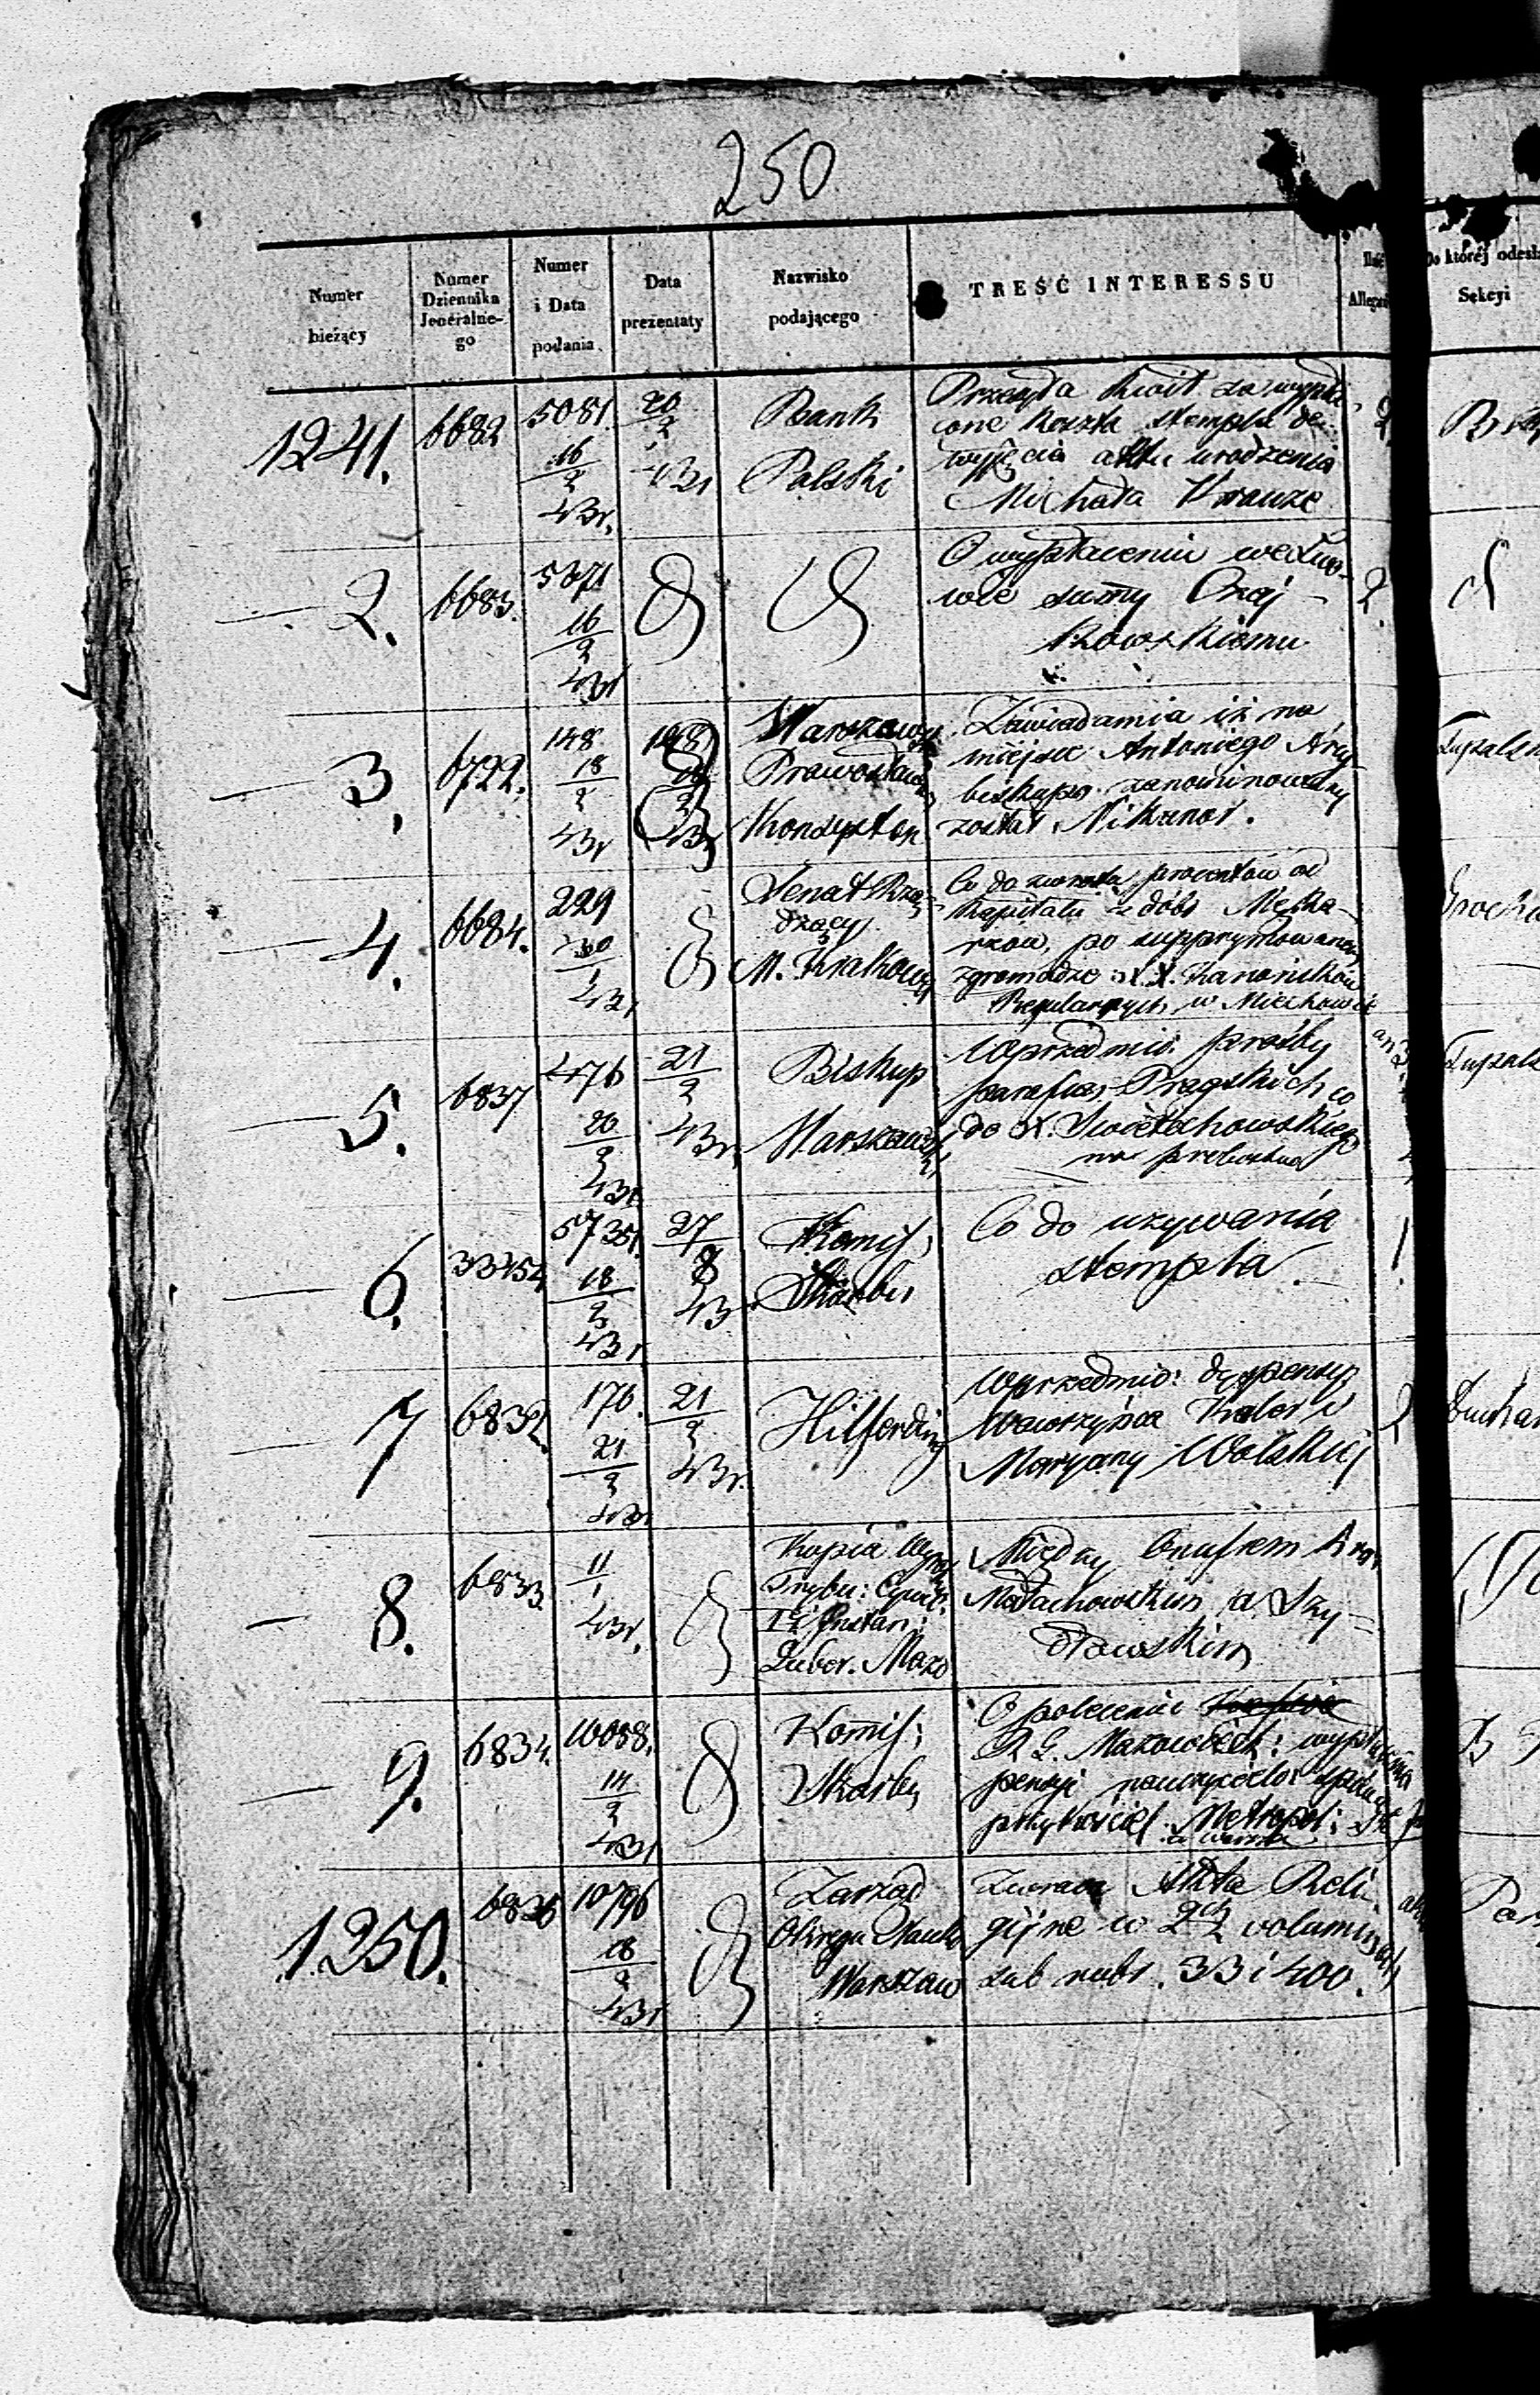 250
Numer bieżący
Numer Dziennika Jeneralne-go
Numer i Data podania
Data prezentaty
Nazwisko podającego
TREŚĆ INTERESSU
Do której odesła
Sekcyi
1241. 6682 5081 16/2 431. 20/2 431
Bank
Polski
Przesyła kwit za wypła-
cone koszta stempla do
wyjęcia aktu urodzenia
Michała Krauze
2. 6683. 5671 16/2 431
O wypłaceniu we Lwo-
wie summy Czaj-
kowskiemu
2.
3. 6722. 148 18/2 431
Warszaws
Prawosławny
Konsystor
Zawiadamia iż na
miejsce Antoniego Arcy
biskupa zanominowany
został Nikanor.
4. 6684. 229 30/1 431
Senat Rzą-
dzący
M. Krakowa
Co do zwrotu procentów od
kapitału z dóbr Męka-
rzow, po supprymowanem
zgromadze: X.X. Kanoników
Regularnych w Miechowie
5. 6837 476 20/2 431 21/2 431
Biskup
Warszawski
W przedmio. prośby
parafian Pragskich co
do X. Swiętochowskiego
na probostwo
6. 33154 57351. 18/2 431 27/8 43
Komis:
Skarbu
Co do używania
stempla.
7 6832. 176. 21/2 431 21/2 431.
Hilferding
W przedmio: dyspensy
Wawrzyńca Kaler i
Maryany Wolskiej
2
8. 6833. 11/1 431.
Kopia Wyro
Trybu: Cywil:
Iej Instan:
Guber. Mazo
Między Onufrem Hra.
Małachowskim a Szy-
dłowskim
9. 6834. 10088. 14/2 431
Komis:
Skarbu
O polecenie
R. G. Mazowieck: wypłacenia
pensyi nauczycielos śpiewu
przy kościel. Metropol:
w Warsza
1250. 6836 10796 18/2 431
Zarząd
Okręgu Nauko
Warszaw
Zwraca Akta Reli-
gijne w 2ch voluminach
sub rubr. 33 i 400.